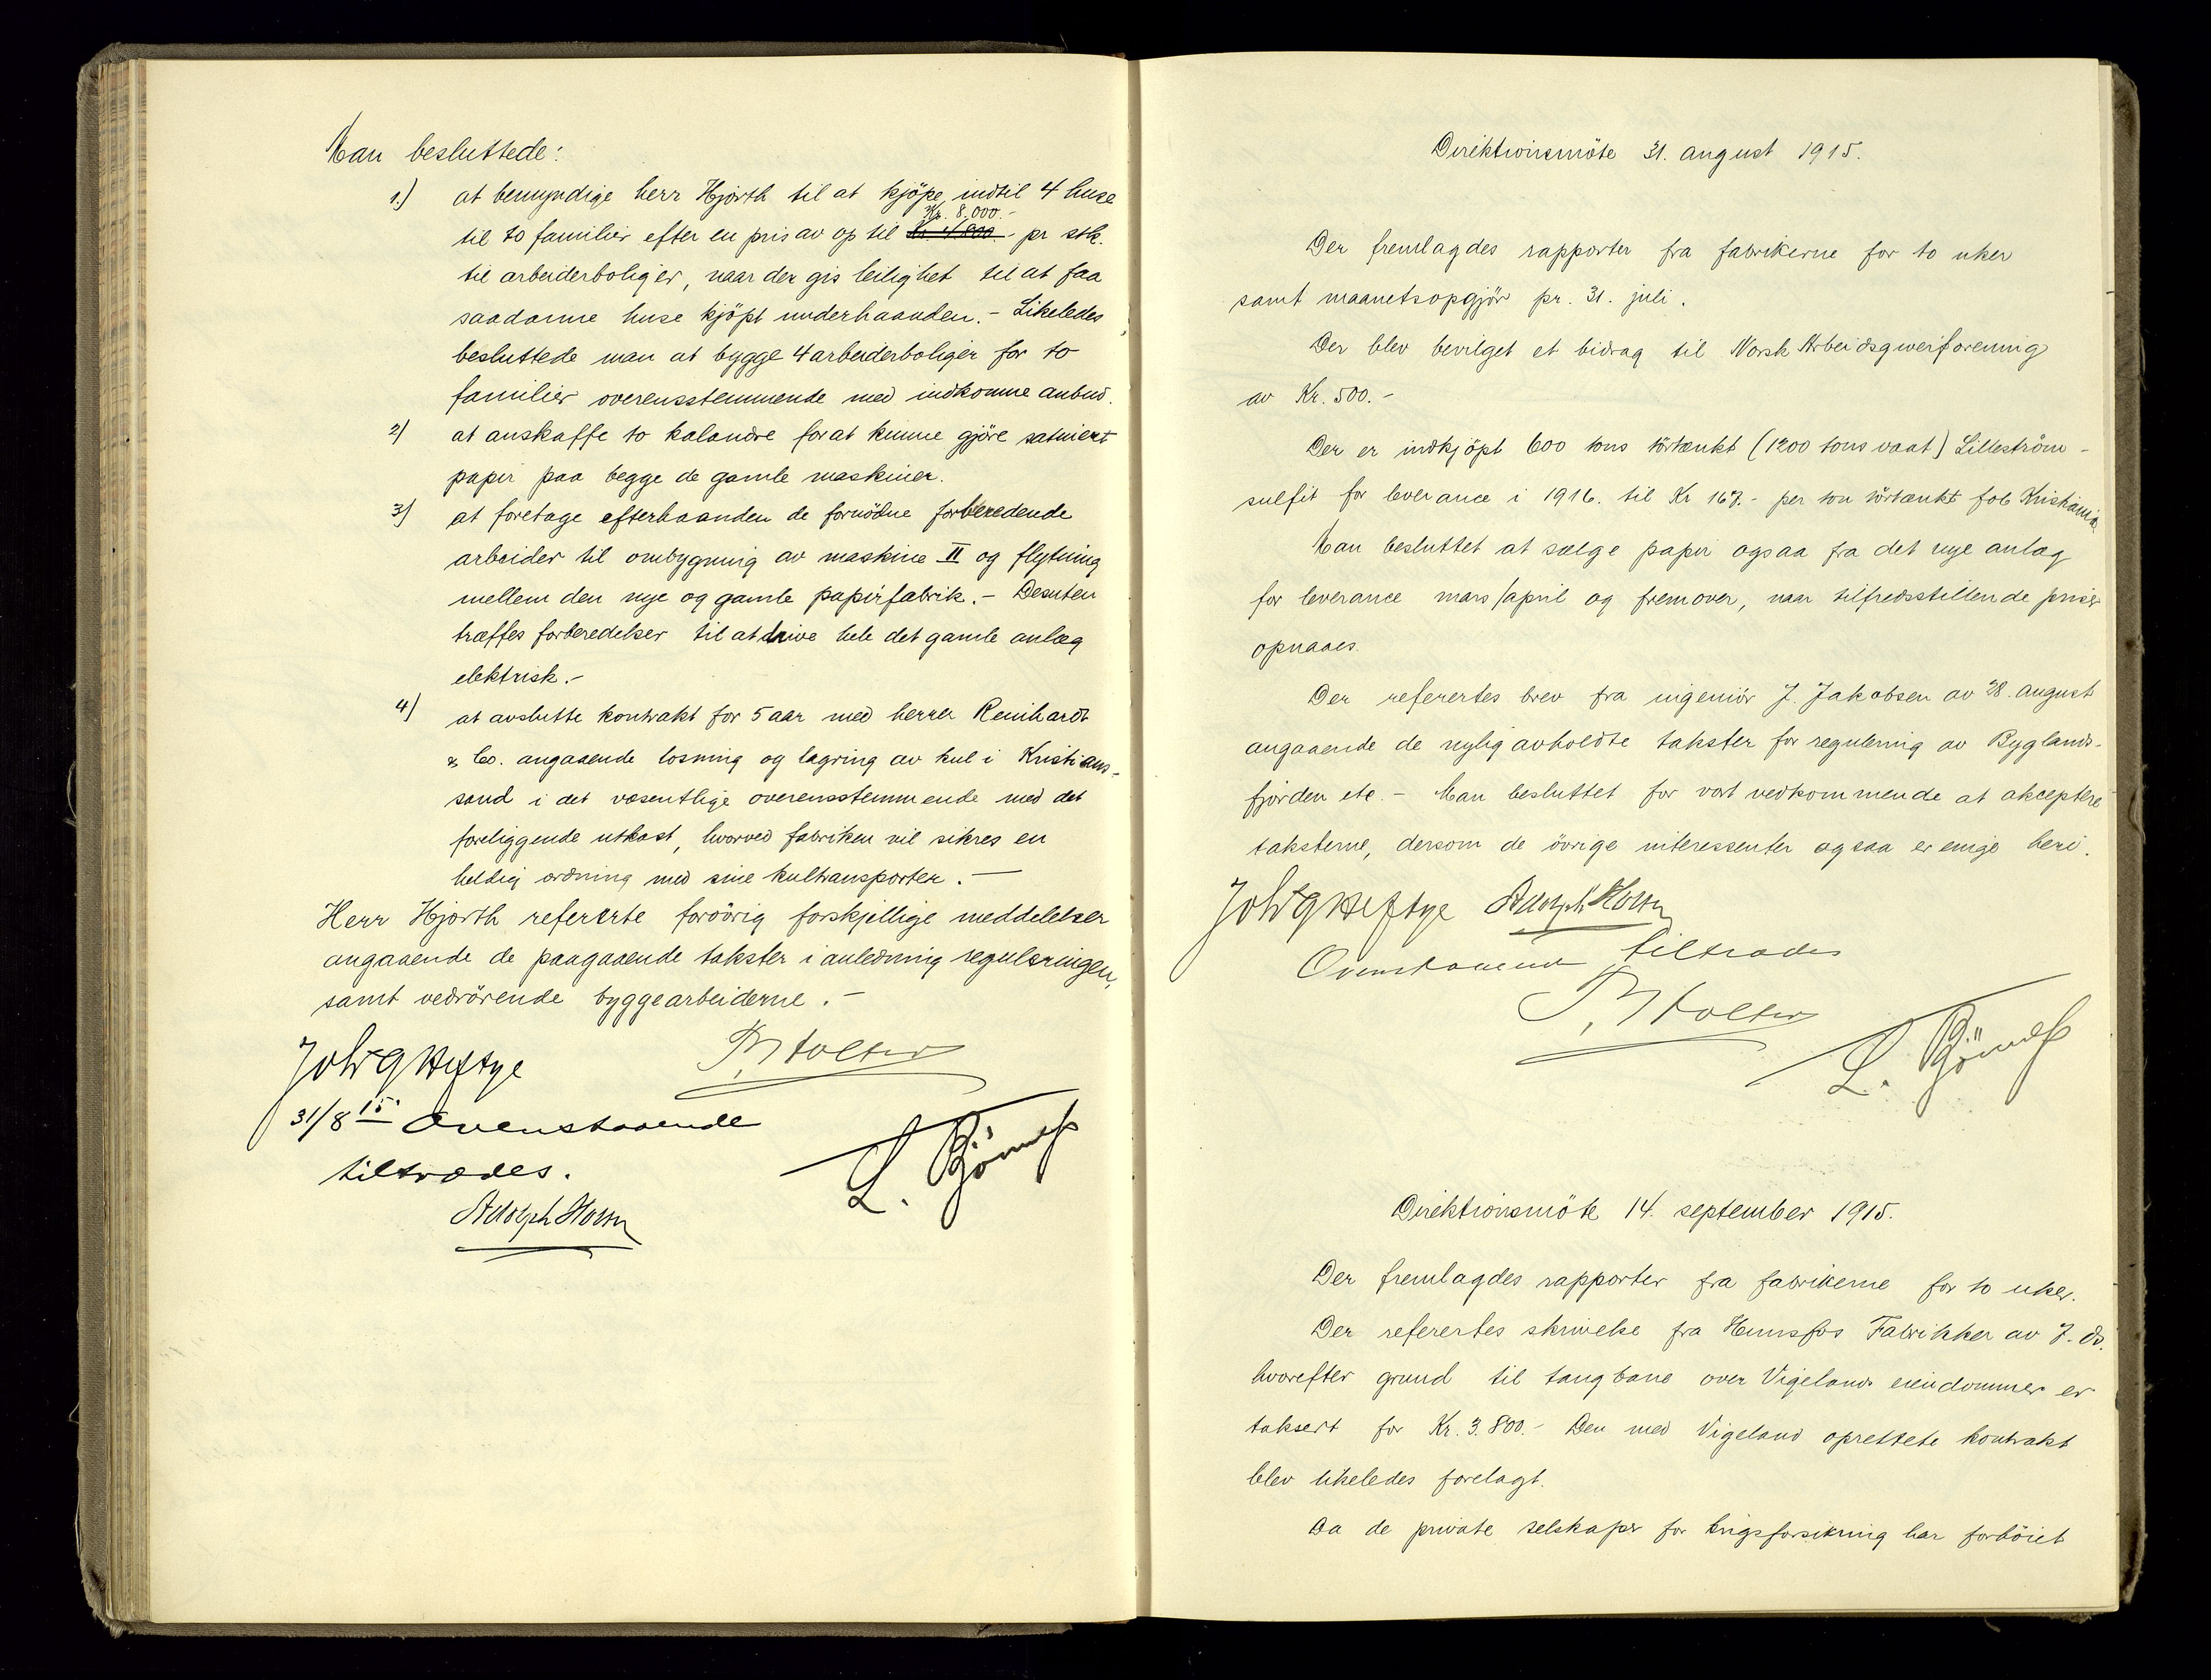 Man besluttede:
1.) at bemyndige herr Hjorth til at kjöpe indtil 4 huse
Kr. 8.000.-
til to familier efter en pris av op til Kr. 4.000.- pr stk.
til arbeiderboliger, naar der gis leilighet til at faa
saadanne huse kjöpt underhaanden.- Likeledes
besluttede man at bygge 4 arbeiderboliger for to
familier overensstemmende med indkomne anbud.
2) at anskaffe to kalandre forat kunne gjöre satinert
papir paa begge de gamle maskiner.
3) at foretage efterhaanden de fornödne forberedende
arbeider til ombygning av maskine II og flytning
mellem den nye og gamle papirfabrik.- Desuten
træffes forberedelser til at drive hele det gamle anlæg
elektrisk.-
4) at avslutte kontrakt for 5 aar med herrer Reinhardt
& Co. angaaende losning og lagring av kul i Kristians-
sand i det væsentlige overensstemmende med det
foreliggende utkast, hvorved fabriken vil sikres en
heldig ordning med sine kultransporter.-
Herr Hjorth refererte forövrig forskjellige meddelelser
angaaende de paagaaende takster i anledning reguleringen,
samt vedrörende byggearbeiderne.-
Joh G Heftye
P. M Holter
31/8 15 Ovenstaaende
tiltrædes.
L. Bönneß
Adolph Holm
Direktionsmöte 31. august 1915.
Der fremlagdes rapporter fra fabrikerne for to uker
samt maanetsopgjör pr. 31. juli.
Der blev bevilget et bidrag til Norsk Arbeidsgiverforening
av Kr. 500.-
Der er indkjöpt 600 tons törtænkt (1200 tons vaat) Lilleström-
sulfit for leverance i 1916. til Kr 167.- per ton törtænkt fob Kristiania
Man besluttet at sælge papir ogsaa fra det nye anlæg
for leverance mars/april og fremover, naar tilfredsstillende priser
opnaaes.
Der refertes brev fra ingeniör J. Jakobsen av 28. august
angaaende de nylig avholdte takster for regulering av Byglands-
fjorden etc.- Man besluttet for vort vedkommende at akceptere
taksterne, dersom de övrige interessenter ogsaa er enige heri.
Joh G Heftye Adolph Holm
Ovenstaaende tiltrædes
P. M Holter
L. Bönneß
Direktionsmöte 14. september 1915.
Der fremlagdes rapporter fra fabrikerne for to uker.
Der refertes skrivelse fra Hunsfos Fabrikker av 7. ds.
hvorefter grund til taugbane over Vigelands eiendommer er
taksert for Kr. 3.800.- Den med Vigeland oprettete kontrakt
blev likeledes forelagt.
Da de private selskaper for krigsforsikring har forhöiet